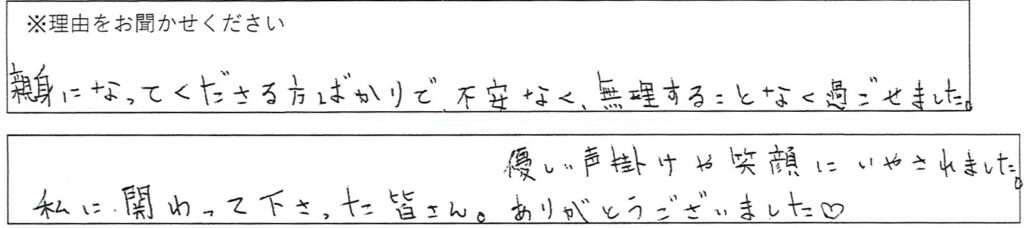 ※理由をお聞かせください
親身になってくださる方ばかりで、不安なく、無理することなく過ごせました。
優しい声掛けや笑顔にいやされました。
私に関わって下さった皆さん。ありがとうございました♡